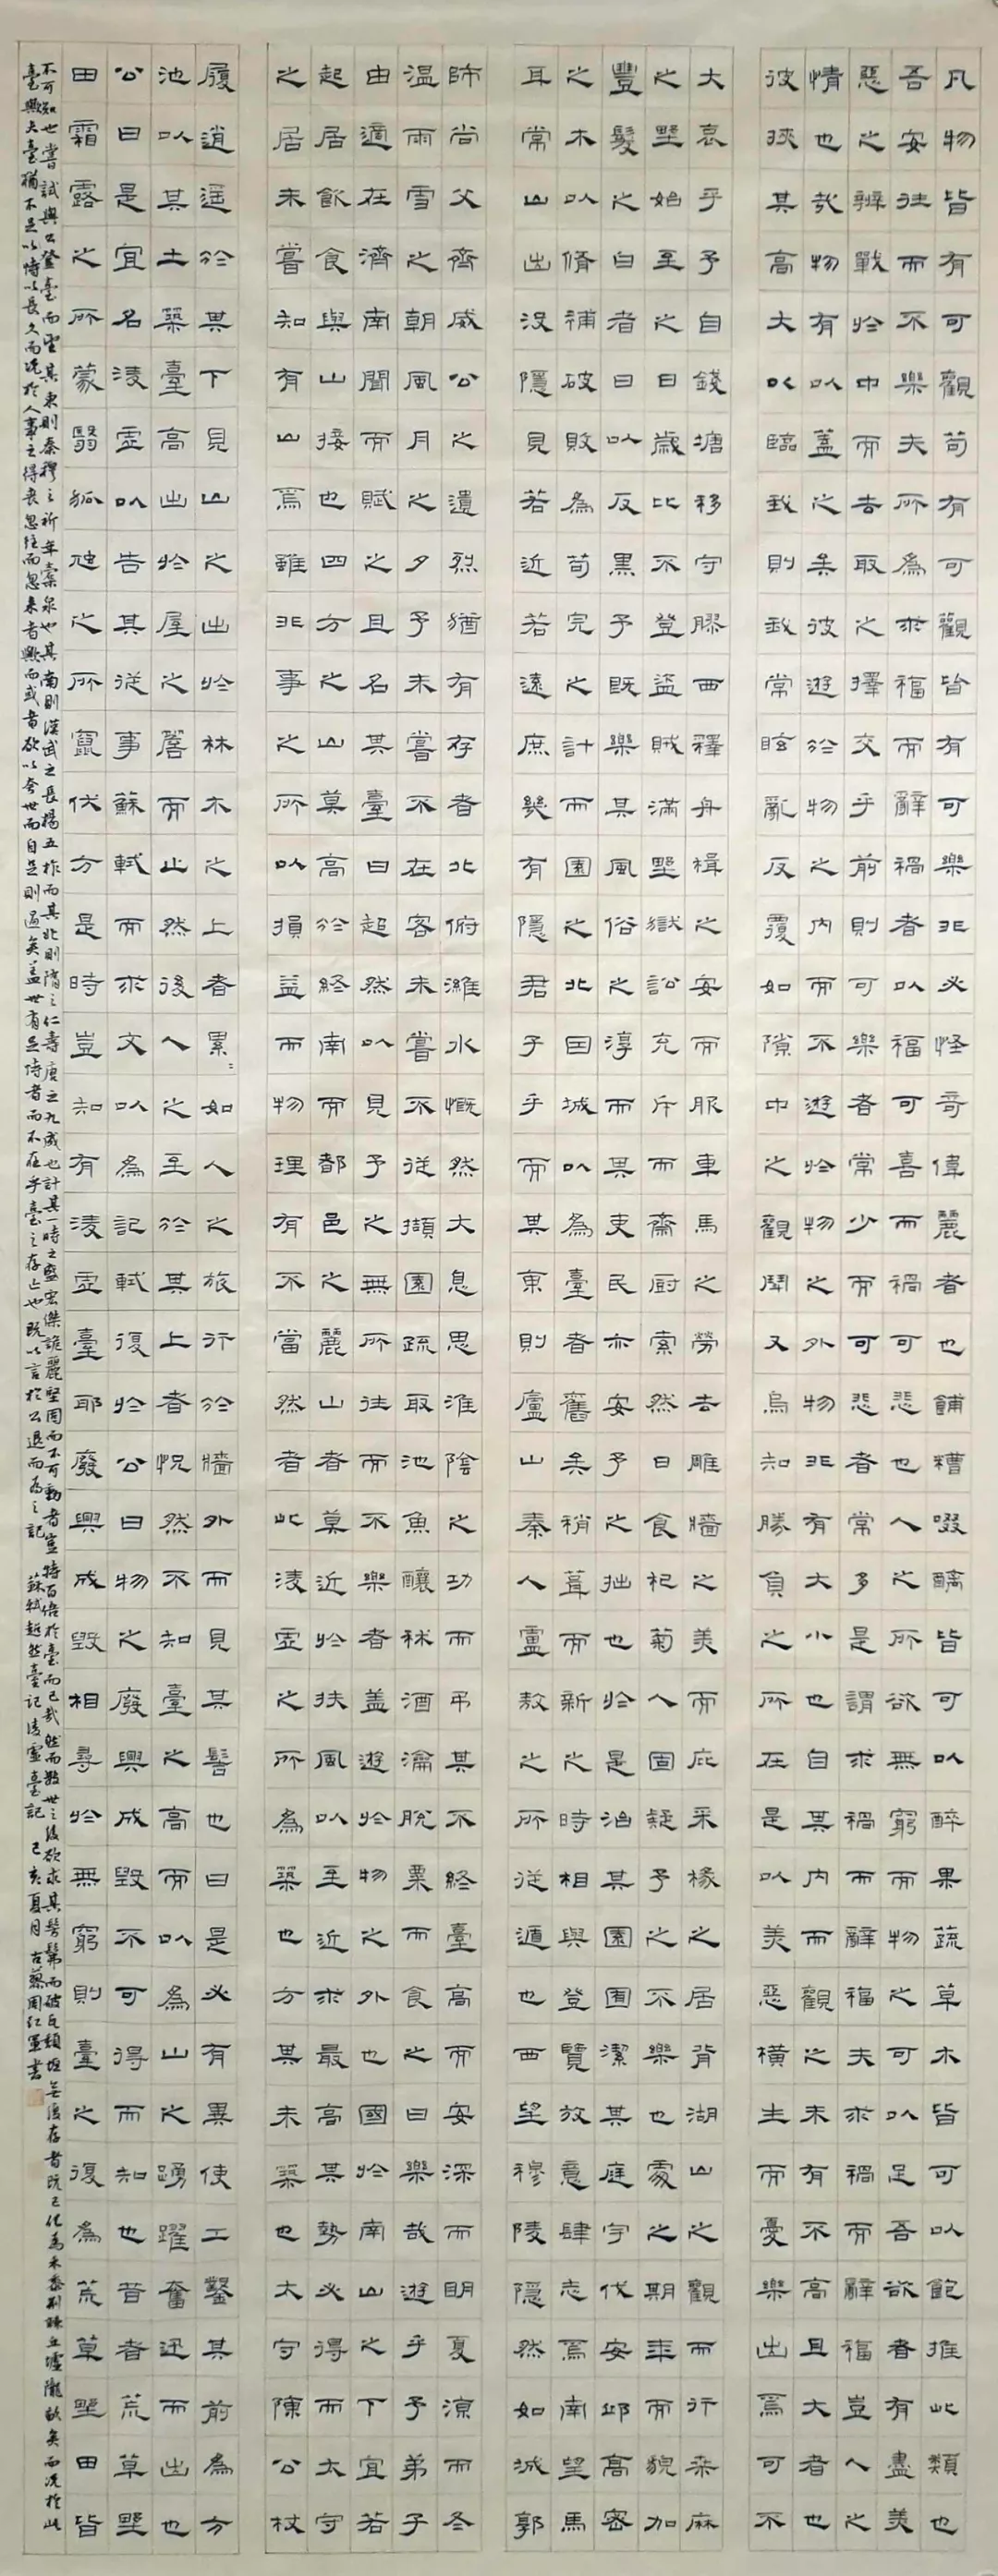 凡物皆有可觀苟有可觀皆有可樂非必怪奇偉麗者也餔糟啜醨皆可以醉果蔬草木皆可以飽推此類也
吾安往而不樂夫所為求福而辭禍者以福可喜而禍可悲也人之所欲無窮而物之可以足吾欲者有盡美
惡之辨戰於中而去取之擇交乎前則可樂者常少而可悲者常多是謂求禍而辭福夫求禍而辭福豈人之
情也哉物有以蓋之矣彼遊於物之內而不遊於物之外物非有大小也自其內而觀之未有不高且大者也
彼挾其高大以臨我則我常眩亂反覆如隙中之觀鬥又烏知勝負之所在是以美惡橫生而憂樂出焉可不
大哀乎予自錢塘移守膠西釋舟楫之安而服車馬之勞去雕牆之美而庇采椽之居背湖山之觀而行桑麻
之野始至之日歲比不登盜賊滿野獄訟充斥而齋厨索然日食杞菊人固疑予之不樂也處之期年而貌加
豐髮之白者日以反黑予既樂其風俗之淳而其吏民亦安予之拙也於是治其園囿潔其庭宇伐安邱高密
之木以脩補破敗為苟完之計而園之北因城以為臺者舊矣稍葺而新之時相與登覽放意肆志焉南望馬
耳常山出沒隱見若近若遠庶幾有隱君子乎而其東則廬山秦人盧敖之所從遁也西望穆陵隱然如城郭
師尚父齊威公之遺烈猶有存者北俯濰水慨然大息思淮陰之功而弔其不終臺高而安深而明夏涼而冬
温雨雪之朝風月之夕予未嘗不在客未嘗不從擷園疏取池魚釀秫酒瀹脫粟而食之曰樂哉遊乎予弟子
由適在濟南聞而賦之且名其臺曰超然以見予之無所往而不樂者蓋遊於物之外也國於南山之下宜若
起居飲食與山接也四方之山莫高於終南而都邑之麗山者莫近於扶風以至近求最高其勢必得而太守
之居未嘗知有山焉雖非事之所以損益而物理有不當然者此凌虛之所為築也方其未築也太守陳公杖
履逍遥於其下見山之出於林木之上者累〻如人之旅行於牆外而見其髻也曰是必有異使工鑿其前為方
池以其土築臺高出於屋之簷而止然後人之至於其上者怳然不知臺之高而以為山之踴躍奮迅而出也
公曰是宜名凌虛以告其從事蘇軾而求文以為記軾復於公曰物之廢興成毀不可得而知也昔者荒草野
田霜露之所蒙翳狐虺之所竄伏方是時豈知有凌虛臺耶廢興成毀相尋於無窮則臺之復為荒草野田皆
不可知也嘗試與公登臺而望其東則秦穆之祈年橐泉也其南則漢武之長楊五柞而其北則隋之仁壽唐之九成也計其一時之盛宏傑詭麗堅固而不可動者豈特百倍於臺而已哉然而數世之後欲求其髣髴而破瓦頹垣無復存者既已化為禾黍荊棘丘墟隴畝矣而況於此
臺歟夫臺猶不足以恃以長久而況於人事之得喪忽往而忽來者歟而或者欲以夸世而自足則過矣蓋世有足恃者而不在乎臺之存亡也既以言於公退而為之記 蘇軾超然臺記凌虛臺記 己亥夏月古蔡周紅軍書